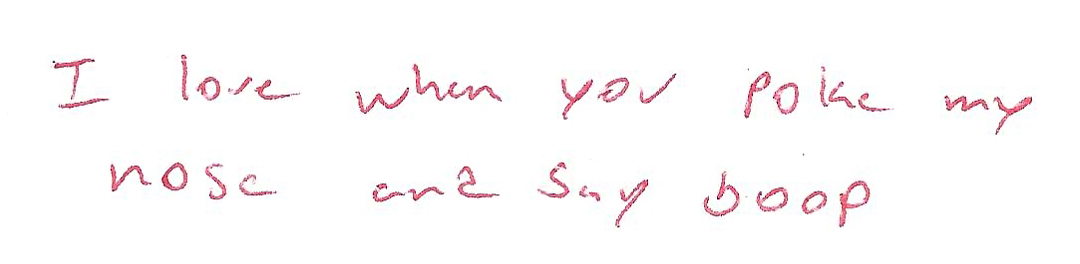 I love when you poke my
nose and say boop